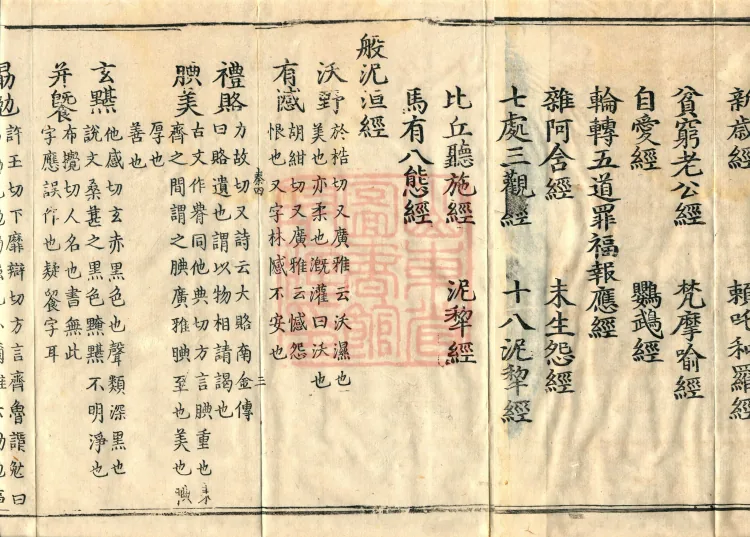 新歲經 賴吒和羅經
貧窮老公經 梵摩喻經
自愛經 鸚鵡經
輪轉五道罪福報應經
雜阿含經 未生怨經
七處三觀經 十八泥犂經
比丘聽施經 泥犂經
馬有八態經
般泥洹經
沃野 於梏切又廣雅云沃濕也
美也亦柔也溉灌曰沃也
有憾 胡紺切又廣雅云憾怨
恨也又字林憾不安也
禮賂 力故切又詩云大賂南金傳
曰賂遺也謂以物相請謁也
腆美 古文作㫪同他典切方言腆重也東
齊之間謂之腆廣雅腆至也美也
厚也
善也
玄黮 他感切玄赤黑色也聲類深黑也
說文桑葚之黑色黤黮不明淨也
并餐 布攪切人名也書無此
字應誤作也疑餐字耳
勖勉 許玉切下靡辯切方言齊魯謂勉曰